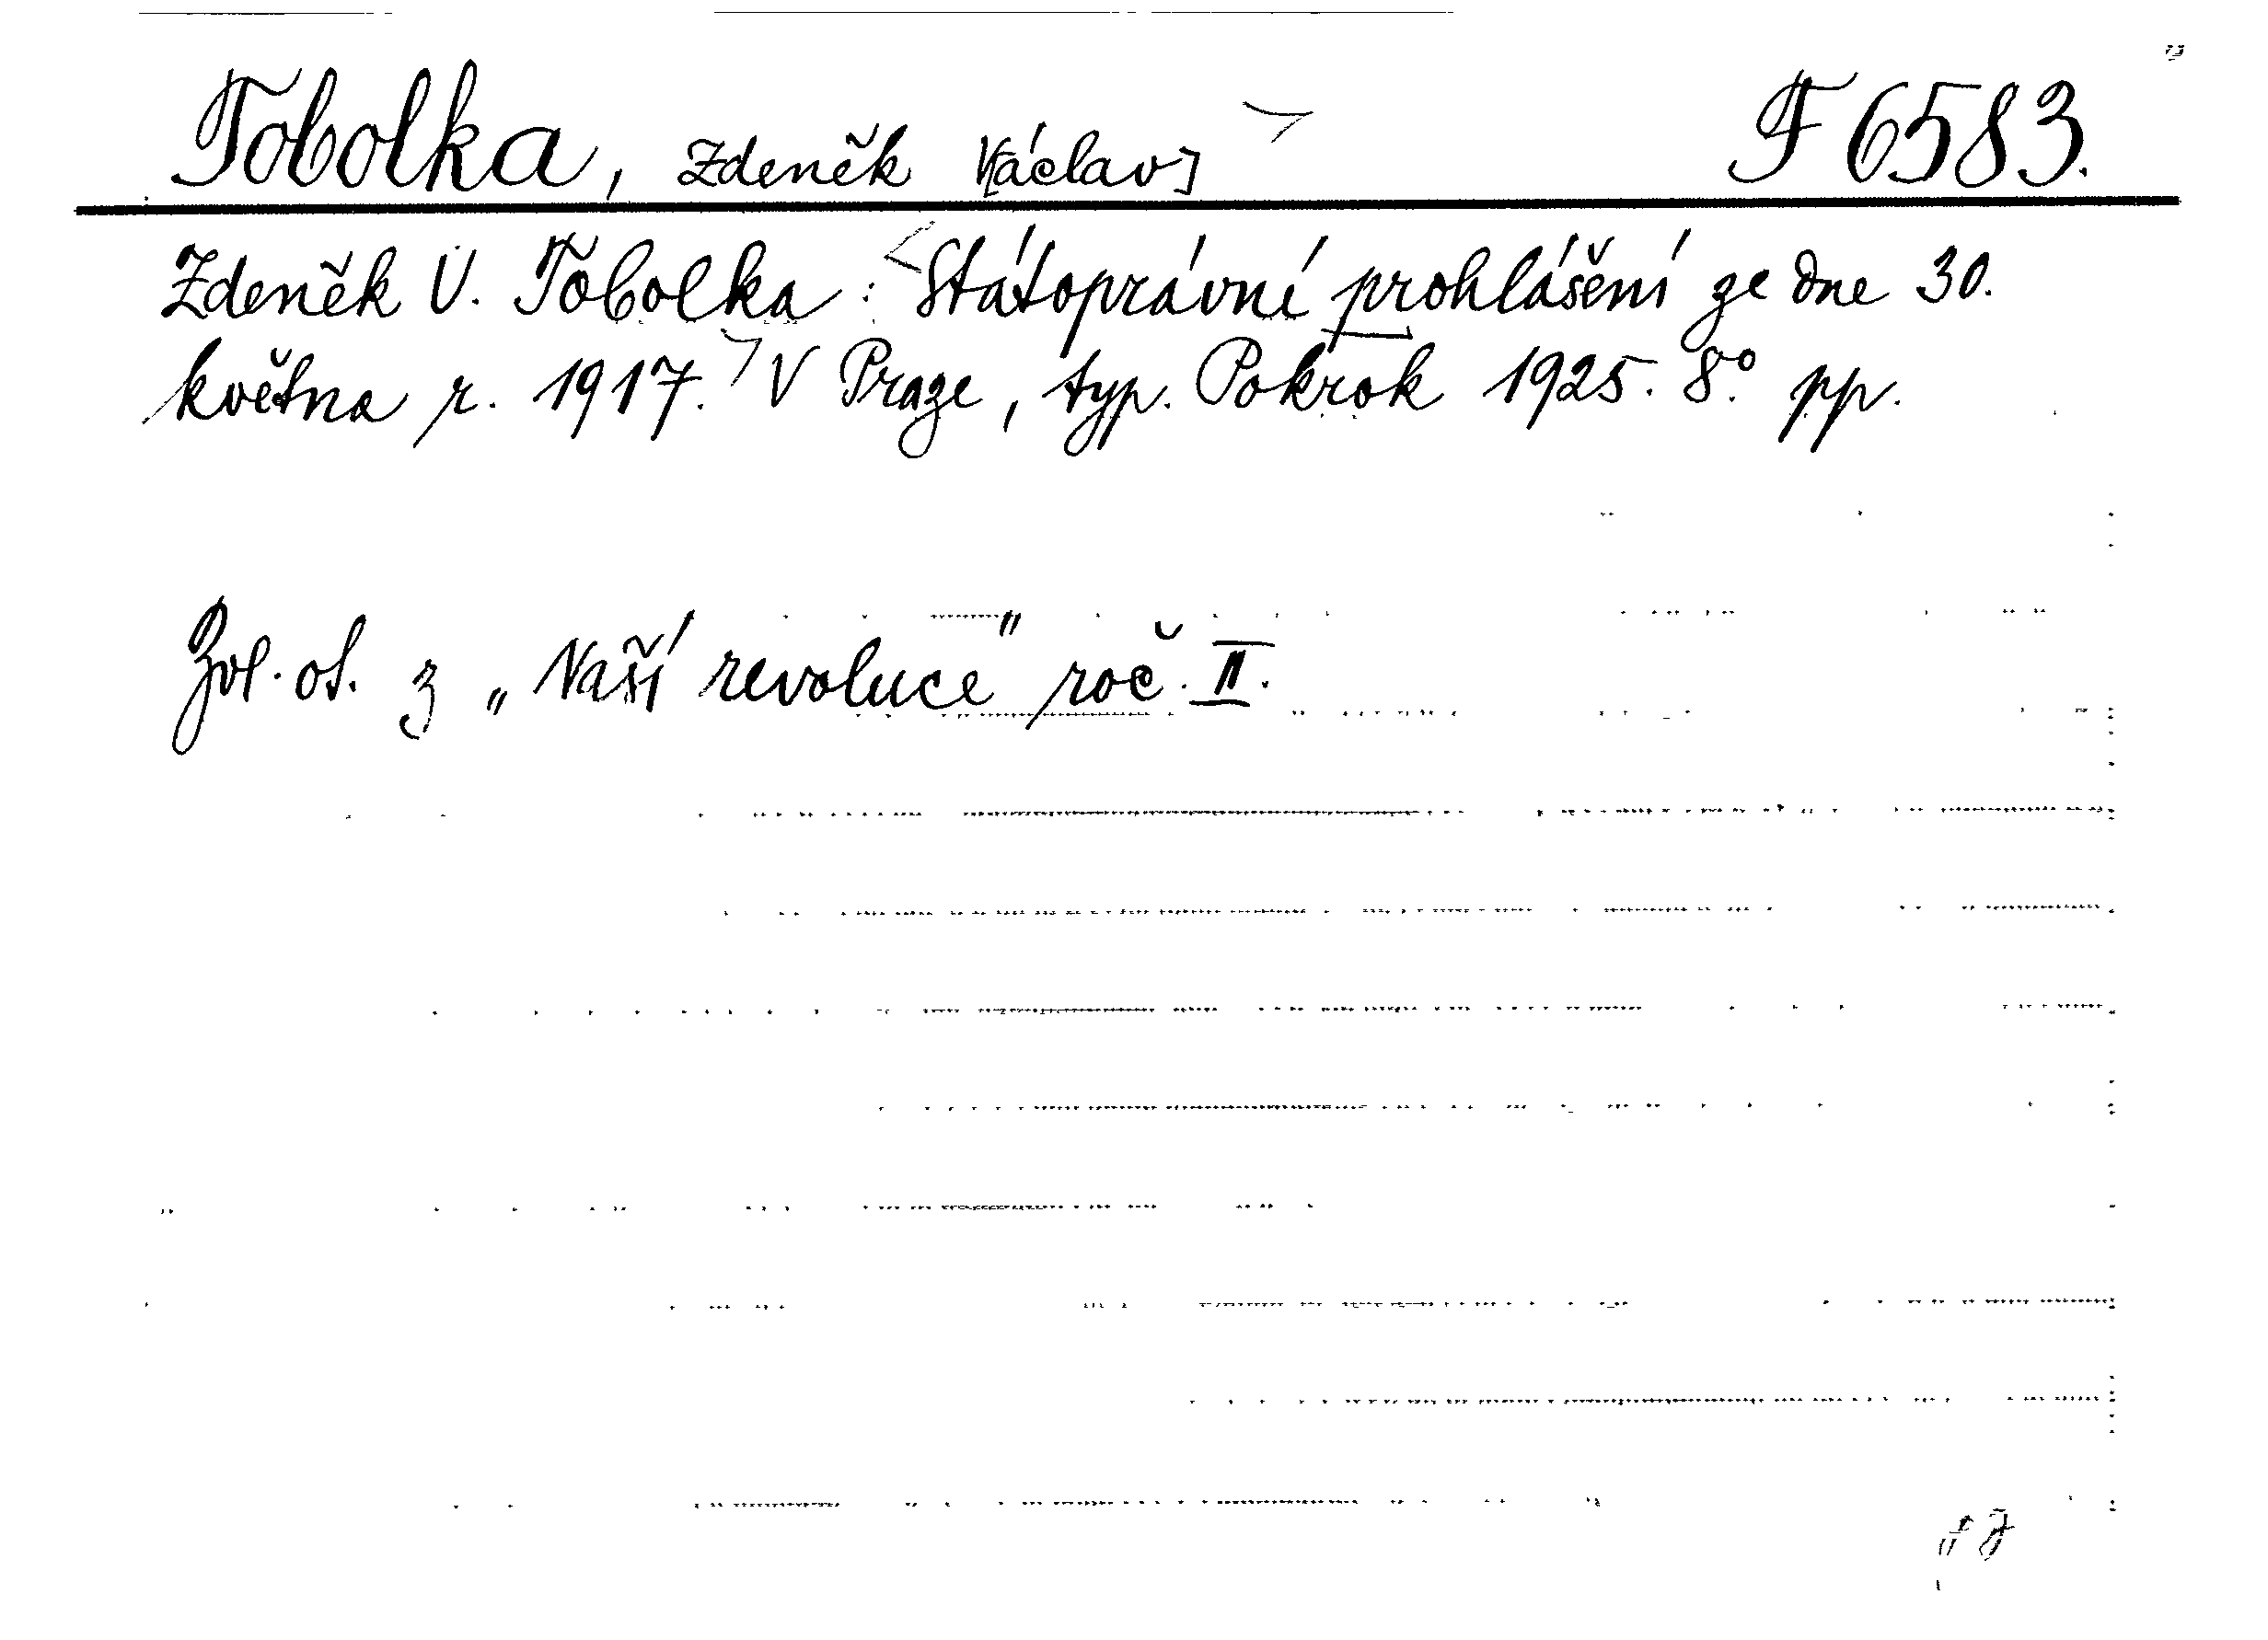 Tobolka, Zdeněk V[áclav] F 6583.
Zdeněk V. Tobolka: Státoprávní prohlášení ze dne 30.
května r. 1917. V Praze, typ. Pokrok 1925. 8° pp.
Zvl. ot. z „Naší revoluce" roč. II.